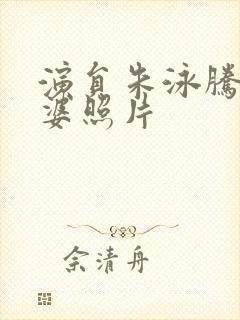 演員朱泳騰
婆照片
余清舟